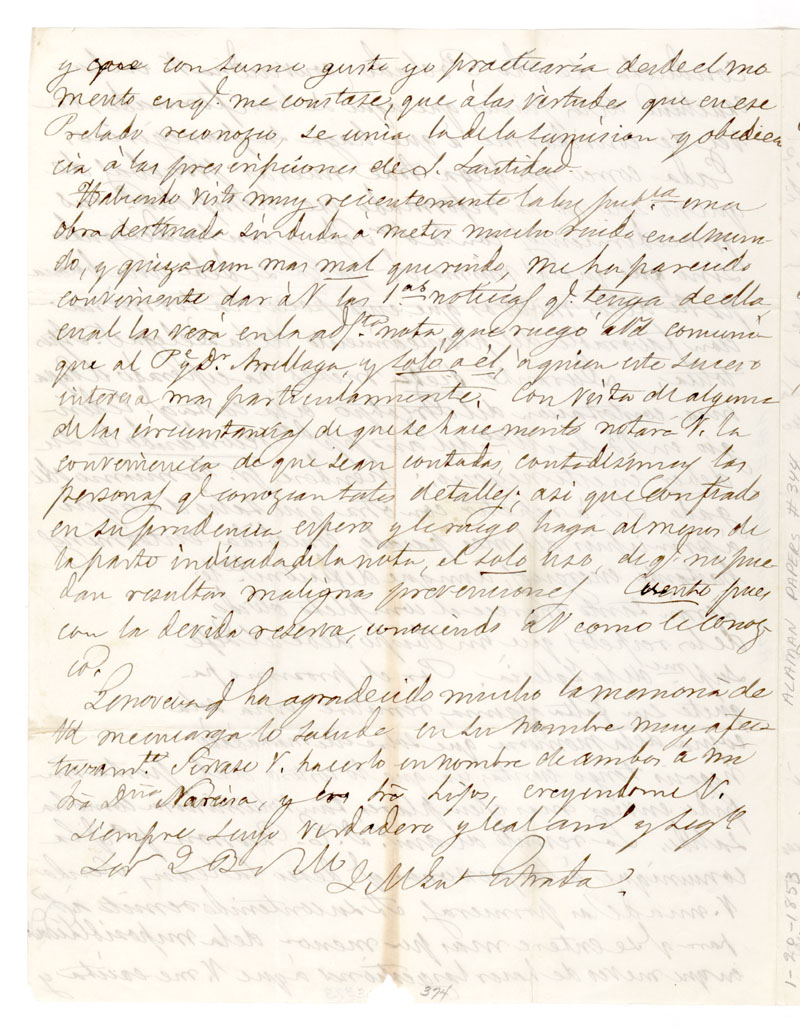 y que con sumo gusto yo practicaria desde el mo
mento en qe. me constase, que à las virtudes que en ese
Prelado reconozco, se unia la de la sumision y obedien
cia à las prescripciones de S. Santidad.
Habiendo visto muy recientemente la luz pubca. una
obra destinada sin duda à meter mucho ruido en el mun-
do, y quiza aun mas mal queriendo, me ha parecido
conveniente dar à V las 1as noticias qe. tenga de ella
cual las verá en la adjta. nota, que ruego à Vd comuni
que al Pe. y Dr. Arrillaga, y solo a él, à quien este suceso
interesa mas particularmente. Con vista de alguna
de las circunstancias de que se hace merito notará V. la
conveniencia de que sean contadas, contadisimas las
personas qe conozcan tales detalles; asi que confiado
en su prudencia espero y le ruego haga al menos de
la parte indicada de la nota, el solo uso, de qe no pue
dan resultar malignas prevenciones. Cuento pues
con la devida reserva, conociendo à V como le conoz
co.
Genoveva qe ha agradecido mucho la memoria de
Vd me encarga le salude en su nombre muy afec
tuosamte. Sirvase V. hacerlo en nombre de ambos à mi
Sra Dña Narcisa, y los Sres hijos, creyendome V.
siempre suyo verdadero y leal amo y segro
Ser Q B S M
J M Gut Estrada
374
ALAMAN PAPERS # 344
1-29-1853